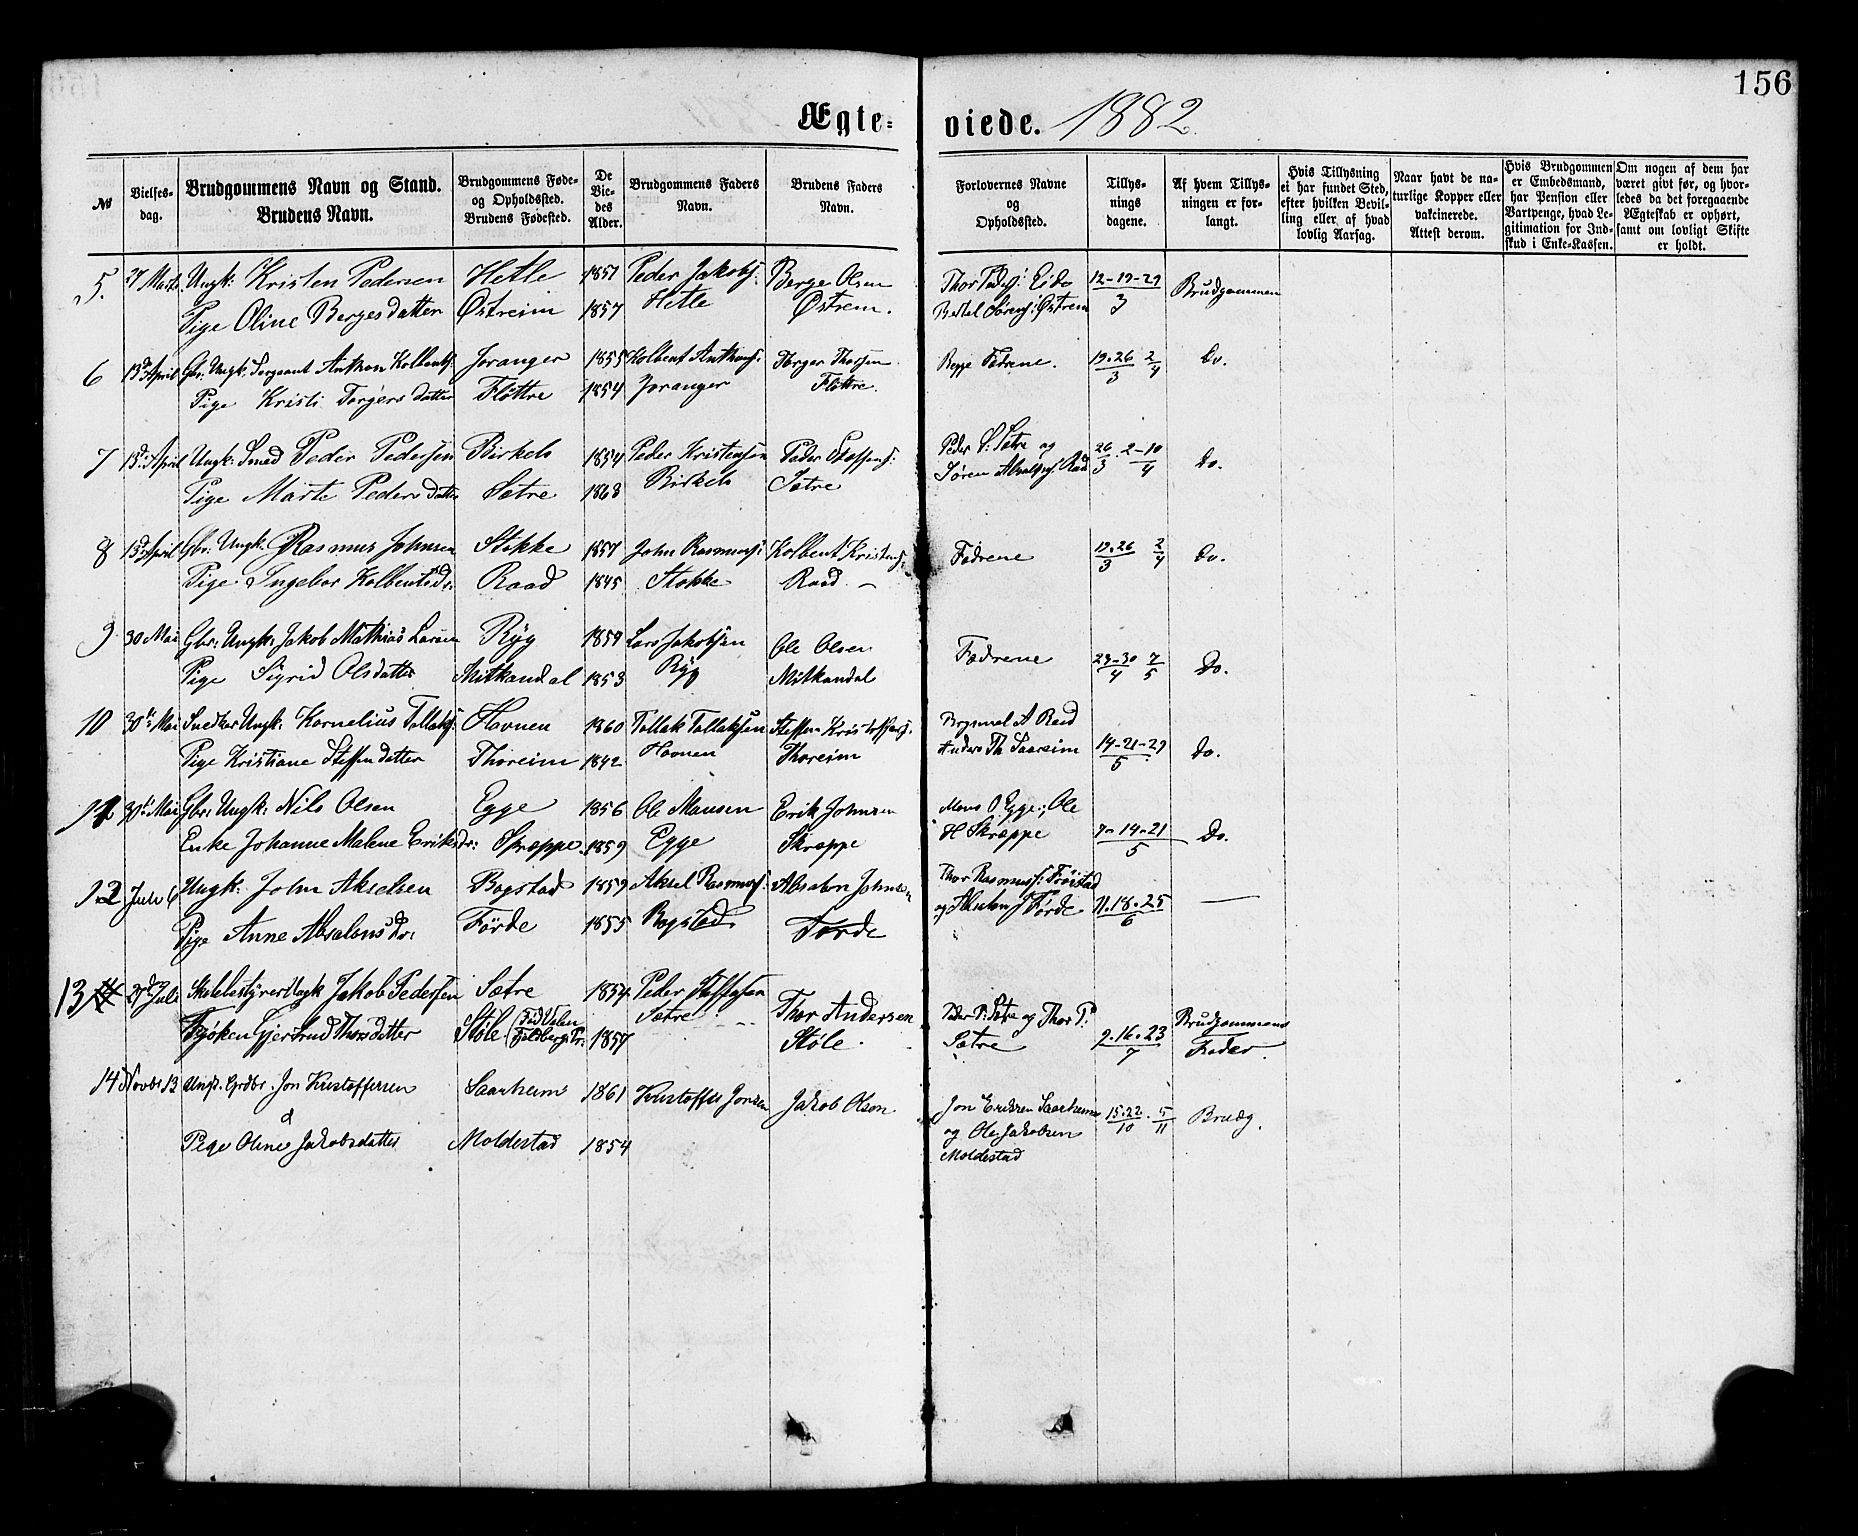 156
Ægte-viede. 1882
№
Vielses-dag.
Brudgommens Navn og Stand. Brudens Navn.
Brudgommens Føde- og Opholdssted. Brudens Fødested.
De Vie-des Alder.
Brudgommens Faders Navn.
Brudens Faders Navn.
Forlovernes Navne og Opholdssted.
Tillys-nings dagene.
Af hvem Tillys-ningen er for-langt.
Hvis Tillysning ei har fundet Sted, efter hvilken Bevil-ling eller af hvad lovlig Aarsag.
Naar havt de na-turlige Kopper eller vakcinerede. Attest derom.
Hvis Brudgommen er Embedsmand, har Pension eller Vartpenge, hvad Le-gitimation for Ind-skud i Enke-Kassen.
Om nogen af dem har været givt før, og hvor-ledes da det foregaaende Ægteskab er ophørt, samt om lovligt Skifte er holdt.
5. 27 Marts Ungk: Kristen Pedersen Hetle 1851 Peder Jakobs: Berge Olsen Eide 12-19-29 Brudgommen
Pige Oline Bergesdatter Østreim 1857 Hetle Østrem. Sørens: Østrem 3
6 13de April Gbr: Ungk: Sergeant Anthon Kolbents: Joranger 1855 Kolbent Anthons: Torger Thorsen Fædrene. 19.26 2 Do.
Pige Kristi Torgersdatter Fløttre 1854 Joranger Fløttre. 3 4
7 13de April Ungk: Smed Peder Pedersen Birkelo 1854 Peder Kristensen Peder Steffens: Peder S: Sætre og 26 2-10 Do.
Pige Marte Pedersdatter Sætre 1863 Birkelo Sætre Søren Absalons: Raad 3 4
8 13de April Gbr: Ungk. Rasmus Johnsen Stokke 1857 John Rasmuss: Kolbent Kristens: Fædrene 19.26 2 Do.
Pige Ingebor Kolbentsd: Raad 1845 Stokke Raad 3 4
9 30 Mai Gbr: Ungk: Jakob Mathias Larsen Ryg 1859 Lars Jakobsen Ole Olsen Fædrene 23-30 7 Do.
Pige Sigrid Olsdatter Mitkandal 1853 Ryg Mitkandal 4 5
10 30te Mai Snedker Ungk: Kornelius Tollaks: Hovnen 1860 Tollak Tollaksen Steffen Kristoffers: A Raad
Pige Kristiane Steffensdatter Thoreim 1842 Hovnen Thoreim Anders Th Saareim 14-21-29 Do.
5
11 30te Mai Gbr: Ungk: Nils Olsen Egge 1856 Ole Monsen Erik Johnsen Mons O Egge; Ole
Enke Johanne Malene Eriksdr: Skræppe. 1859 Egge Skræppe H Skræppe 7-14-21 Do.
5
12 Juli 6 Ungk: John Akselsen Bogstad 1859 Aksel Rasmuss: Absalon Johnsen Thor Rasmuss: Frøistad
Pige Anne Absalonsdr: Førde 1855 Bogstad Førde og Absalon J Førde 11.18.25 —
6
13 27de Juli Skolebestyrer Ungk Jakob Pedersen Sætre 1854 Peder Steffensen Thor Andersen Peder P: Sætre og Thor P: Brudgommens
Frøken Gjertrud Thorsdatter Støle 1857 Sætre Støle. Sætre 9.16.23 Fader.
7
14 Novbr 13 Ungk. Grdbr. Jon Kristoffersen Saarheim 1861 Kristoffer Jonsen Jakob Olsen. Jon Eriksen Saarheim 15.22. 5 Brudg.
& og Ole Jakobsen 10 11
Pige Oline Jakobsdatter Moldestad 1854 Moldestad